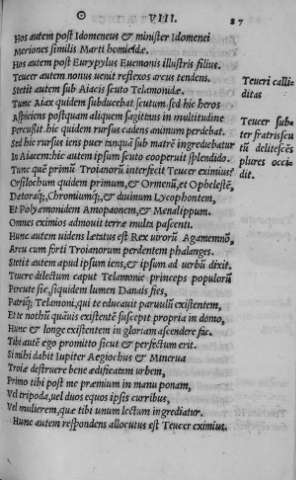 VIII. 87
Hos autem post Idomeneus & minister Idomenei
Meriones similis Marti homicidæ.
Hos autem post Eurypylus Euemonis illustris filius.
Teucer autem nonus uenit reflexos arcus tendens.
Stetit autem sub Aiacis scuto Telamoniadæ.
Tunc Aiax quidem subducebat scutum. sed hic heros
Aspiciens postquam aliquem sagittans in multitudine
Percussit. hic quidem rursus cadens animum perdebat.
Sed hic rursus iens puer tanquã sub matrẽ ingrediebatur
In Aiacem: hic autem ipsum scuto cooperuit splendido.
Tunc quẽ primũ Troianorũ interfecit Teucer eximius?
Orsilochum quidem primum, & Ormenũ, et Ophelestẽ,
Detoraq́;, Chromiumq́;, & diuinum Lycophontem,
Et Polyæmonidem Amopaonem, & Menalippum.
Omnes eximios admouit terræ multa pascenti.
Hunc autem uidens lætatus est Rex uirorũ Agamemnõ,
Arcu cum forti Troianorum perdentem phalanges.
Stetit autem apud ipsum iens, & ipsum ad uerbũ dixit.
Tucre dilectum caput Telamonie princeps populorũ
Percute sic, siquidem lumen Danais fies,
Patriq́; Telamoni, qui te educauit paruulũ existentem,
Et te nothũ quãuis existentẽ suscepit propria in domo,
Hunc & longe existentem in gloriam ascendere fac.
Tibi autẽ ego promitto sicut & perfectum erit.
Si mihi dabit Iupiter Aegiochus & Minerua
Troiæ destruere bene ædificatam urbem,
Primo tibi post me præmium in manu ponam,
Vel tripoda, uel duos equos ipsis curribus,
Vel mulierem, quæ tibi unum lectum ingrediatur.
Hunc autem respondens allocutus est Teucer eximius.
Teucri calli/
ditas
Teucer sub/
ter fratris scu
tũ delitescẽs
plures occi/
dit.